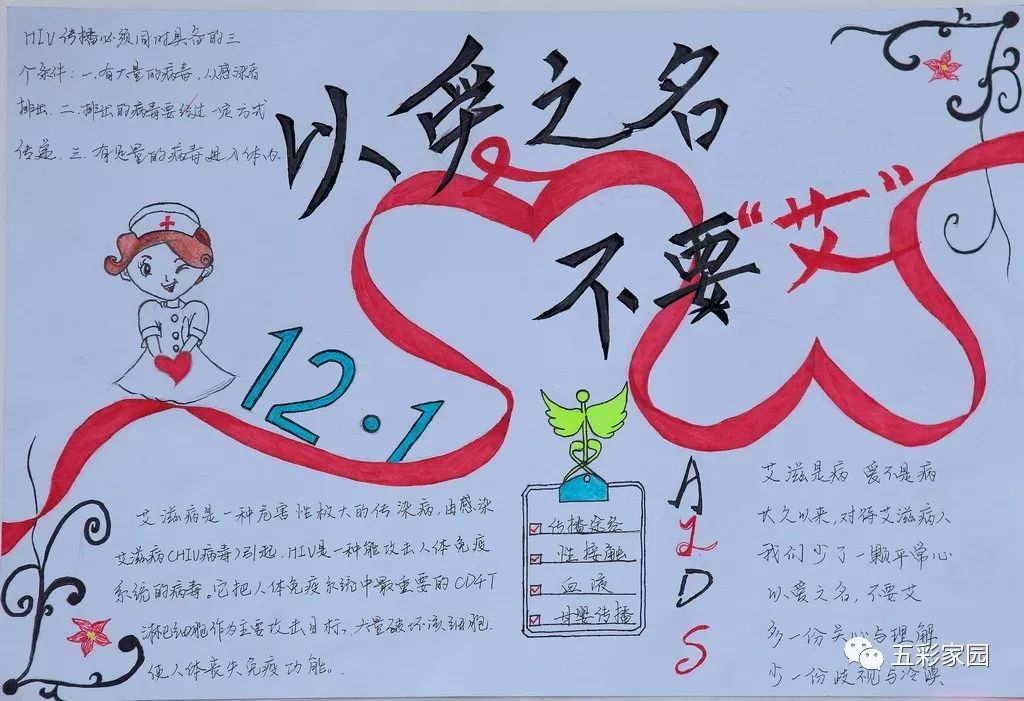 HIV传播必须同时具备的三
个条件：一.有大量的病毒，从感染者
排出.二.排出的病毒要经过一定方式
传递.三.有足量的病毒进入体内.
以爱之名
不要“艾”
12·1
艾滋病是一种危害性极大的传染病,由感染
艾滋病(HIV病毒)引起,HIV是一种能攻击人体免疫
系统的病毒。它把人体免疫系统中最重要的CD4T
淋巴细胞作为主要攻击目标、大量破坏该细胞.
使人体丧失免疫功能.
传播途径
性接触
血液
母婴传播
AIDS
艾滋是病 爱不是病
长久以来,对待艾滋病人
我们少了一颗平常心
以爱之名,不要艾
多一份关心与理解
少一份歧视与冷漠
五彩家园